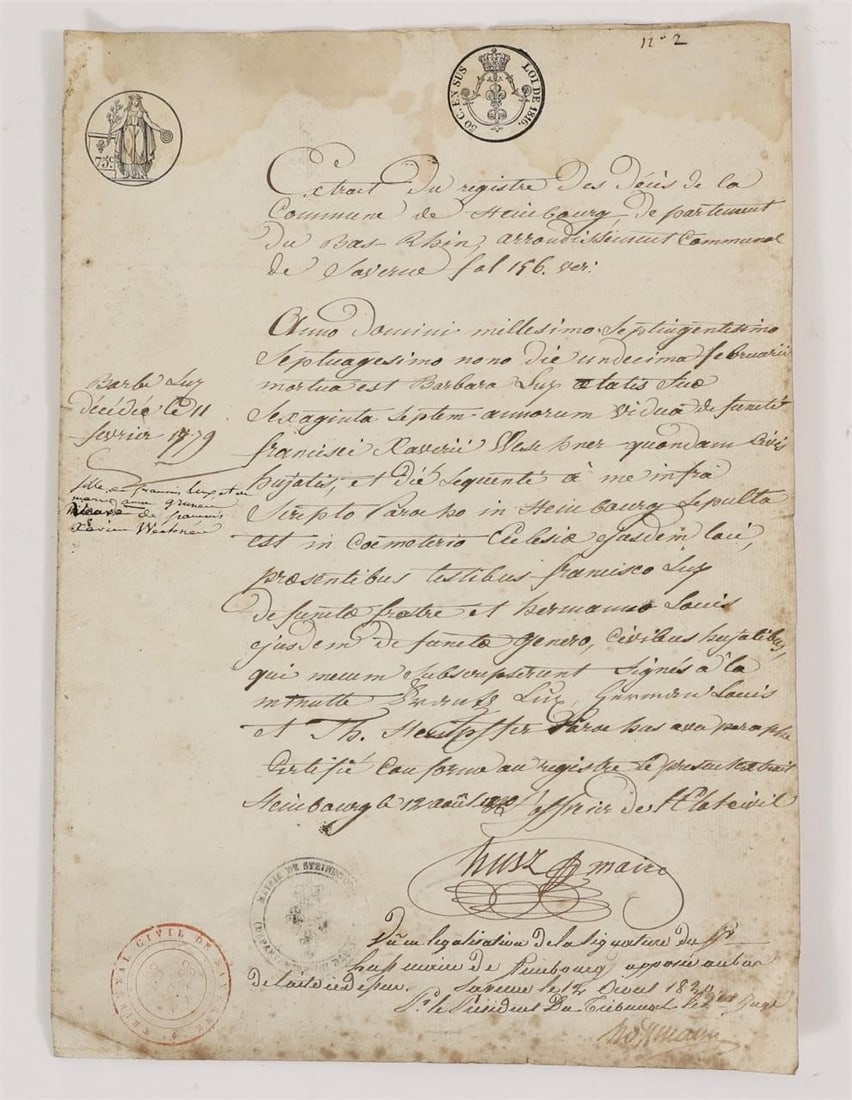 n° 2
50 C. EN SUS LOI DE 1816.
75c
Extrait du registre des décès de la
Commune de Steinbourg, departement
du Bas-Rhin, arrondissement communal
de Saverne fol 156. ver:
Anno domini millesimo Septingentesimo
Septuagesimo nono die undecima februarii
mortua est Barbara Lux ætatis suæ
Sexaginta Septem annorum vidua defuncti
francisci Xaverii Weschner quondam civis
hujatis, et die sequente à me infra
Scripto Parocho in Steinbourg Sepulta
est in Coemeterio Eclesiæ ejusdem loci,
præsentibus testibus francisco Lux
defunctæ fratre et hermanno Louis
ejusdem defunctæ genero, civibus hujatibus,
qui mecum Subscripserunt Signés à la
minutte Frantz Lux, German Louis
et Th. Parochus avec paraphe
Certifié conforme au registre le present extrait
Steinbourg le 12 août officier de l'Etat civil
Barbe Lux
décédée le 11
fevrier 1779
fille de francis Lux, et de
marie anne
veuve de francois
Xavier
maire
MAIRIE DE STEINBOURG
TRIBUNAL CIVIL DE SAVERNE
Vu en legalisation de la Signature du Sr
maire de Steinbourg apposée au bas
Saverne le 12 Aout
Pr le Président Du Tribunal le Juge